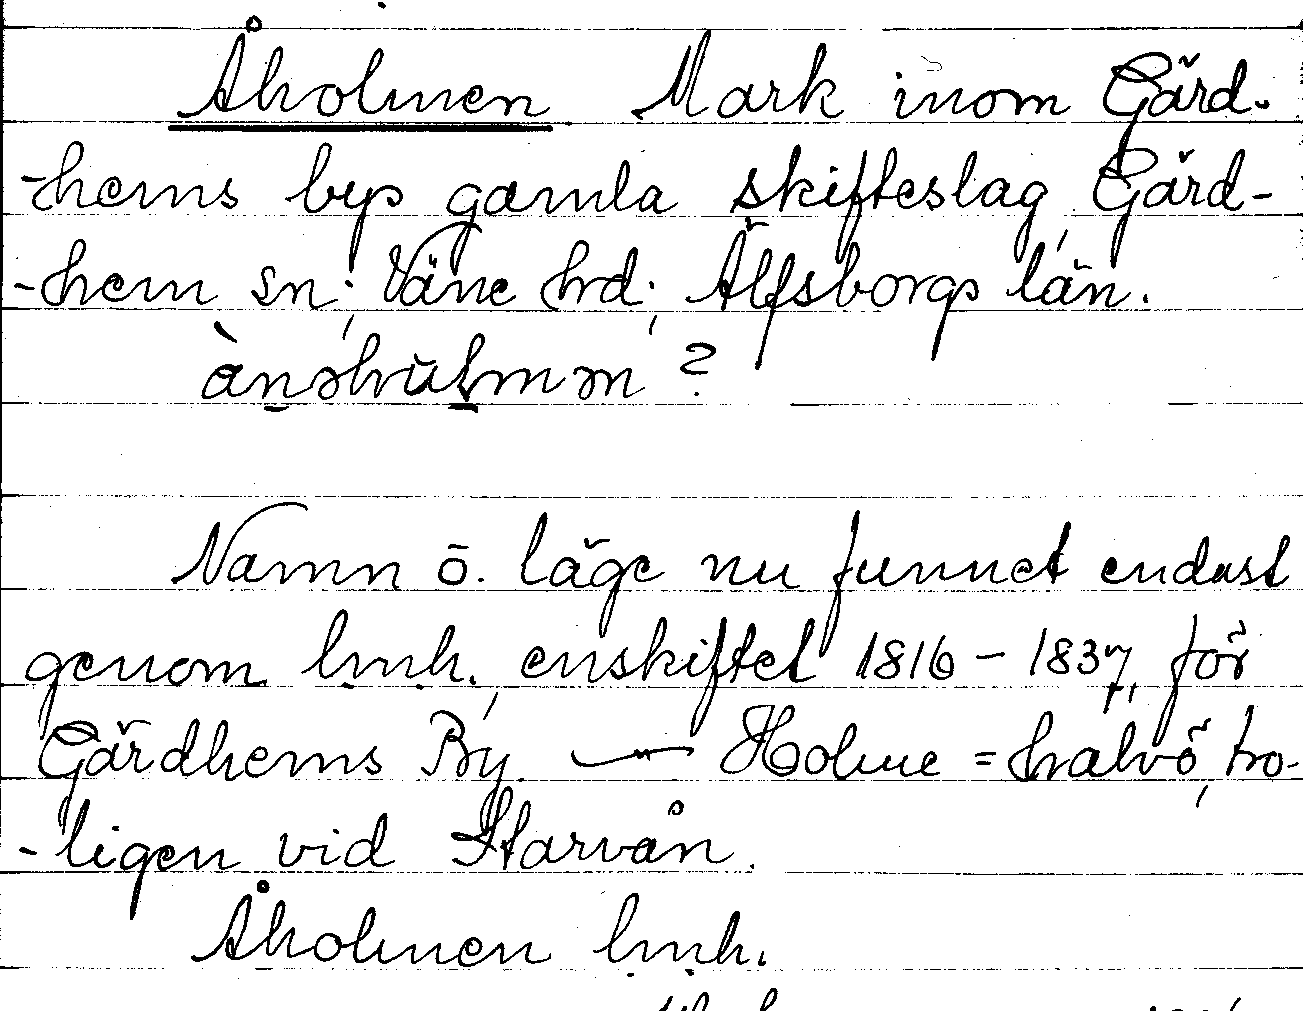 Åholmen Mark inom Gärd-
-hems bys gamla skifteslag, Gärd-
-hem sn; Väne hrd; Älfsborgs län.
?
Namn o. läge nu funnet endast
genom lmh., enskiftet 1816-1837, för
Gärdhems By. — Holme = halvö, tro-
-ligen vid Starvån.
Åholmen lmh.